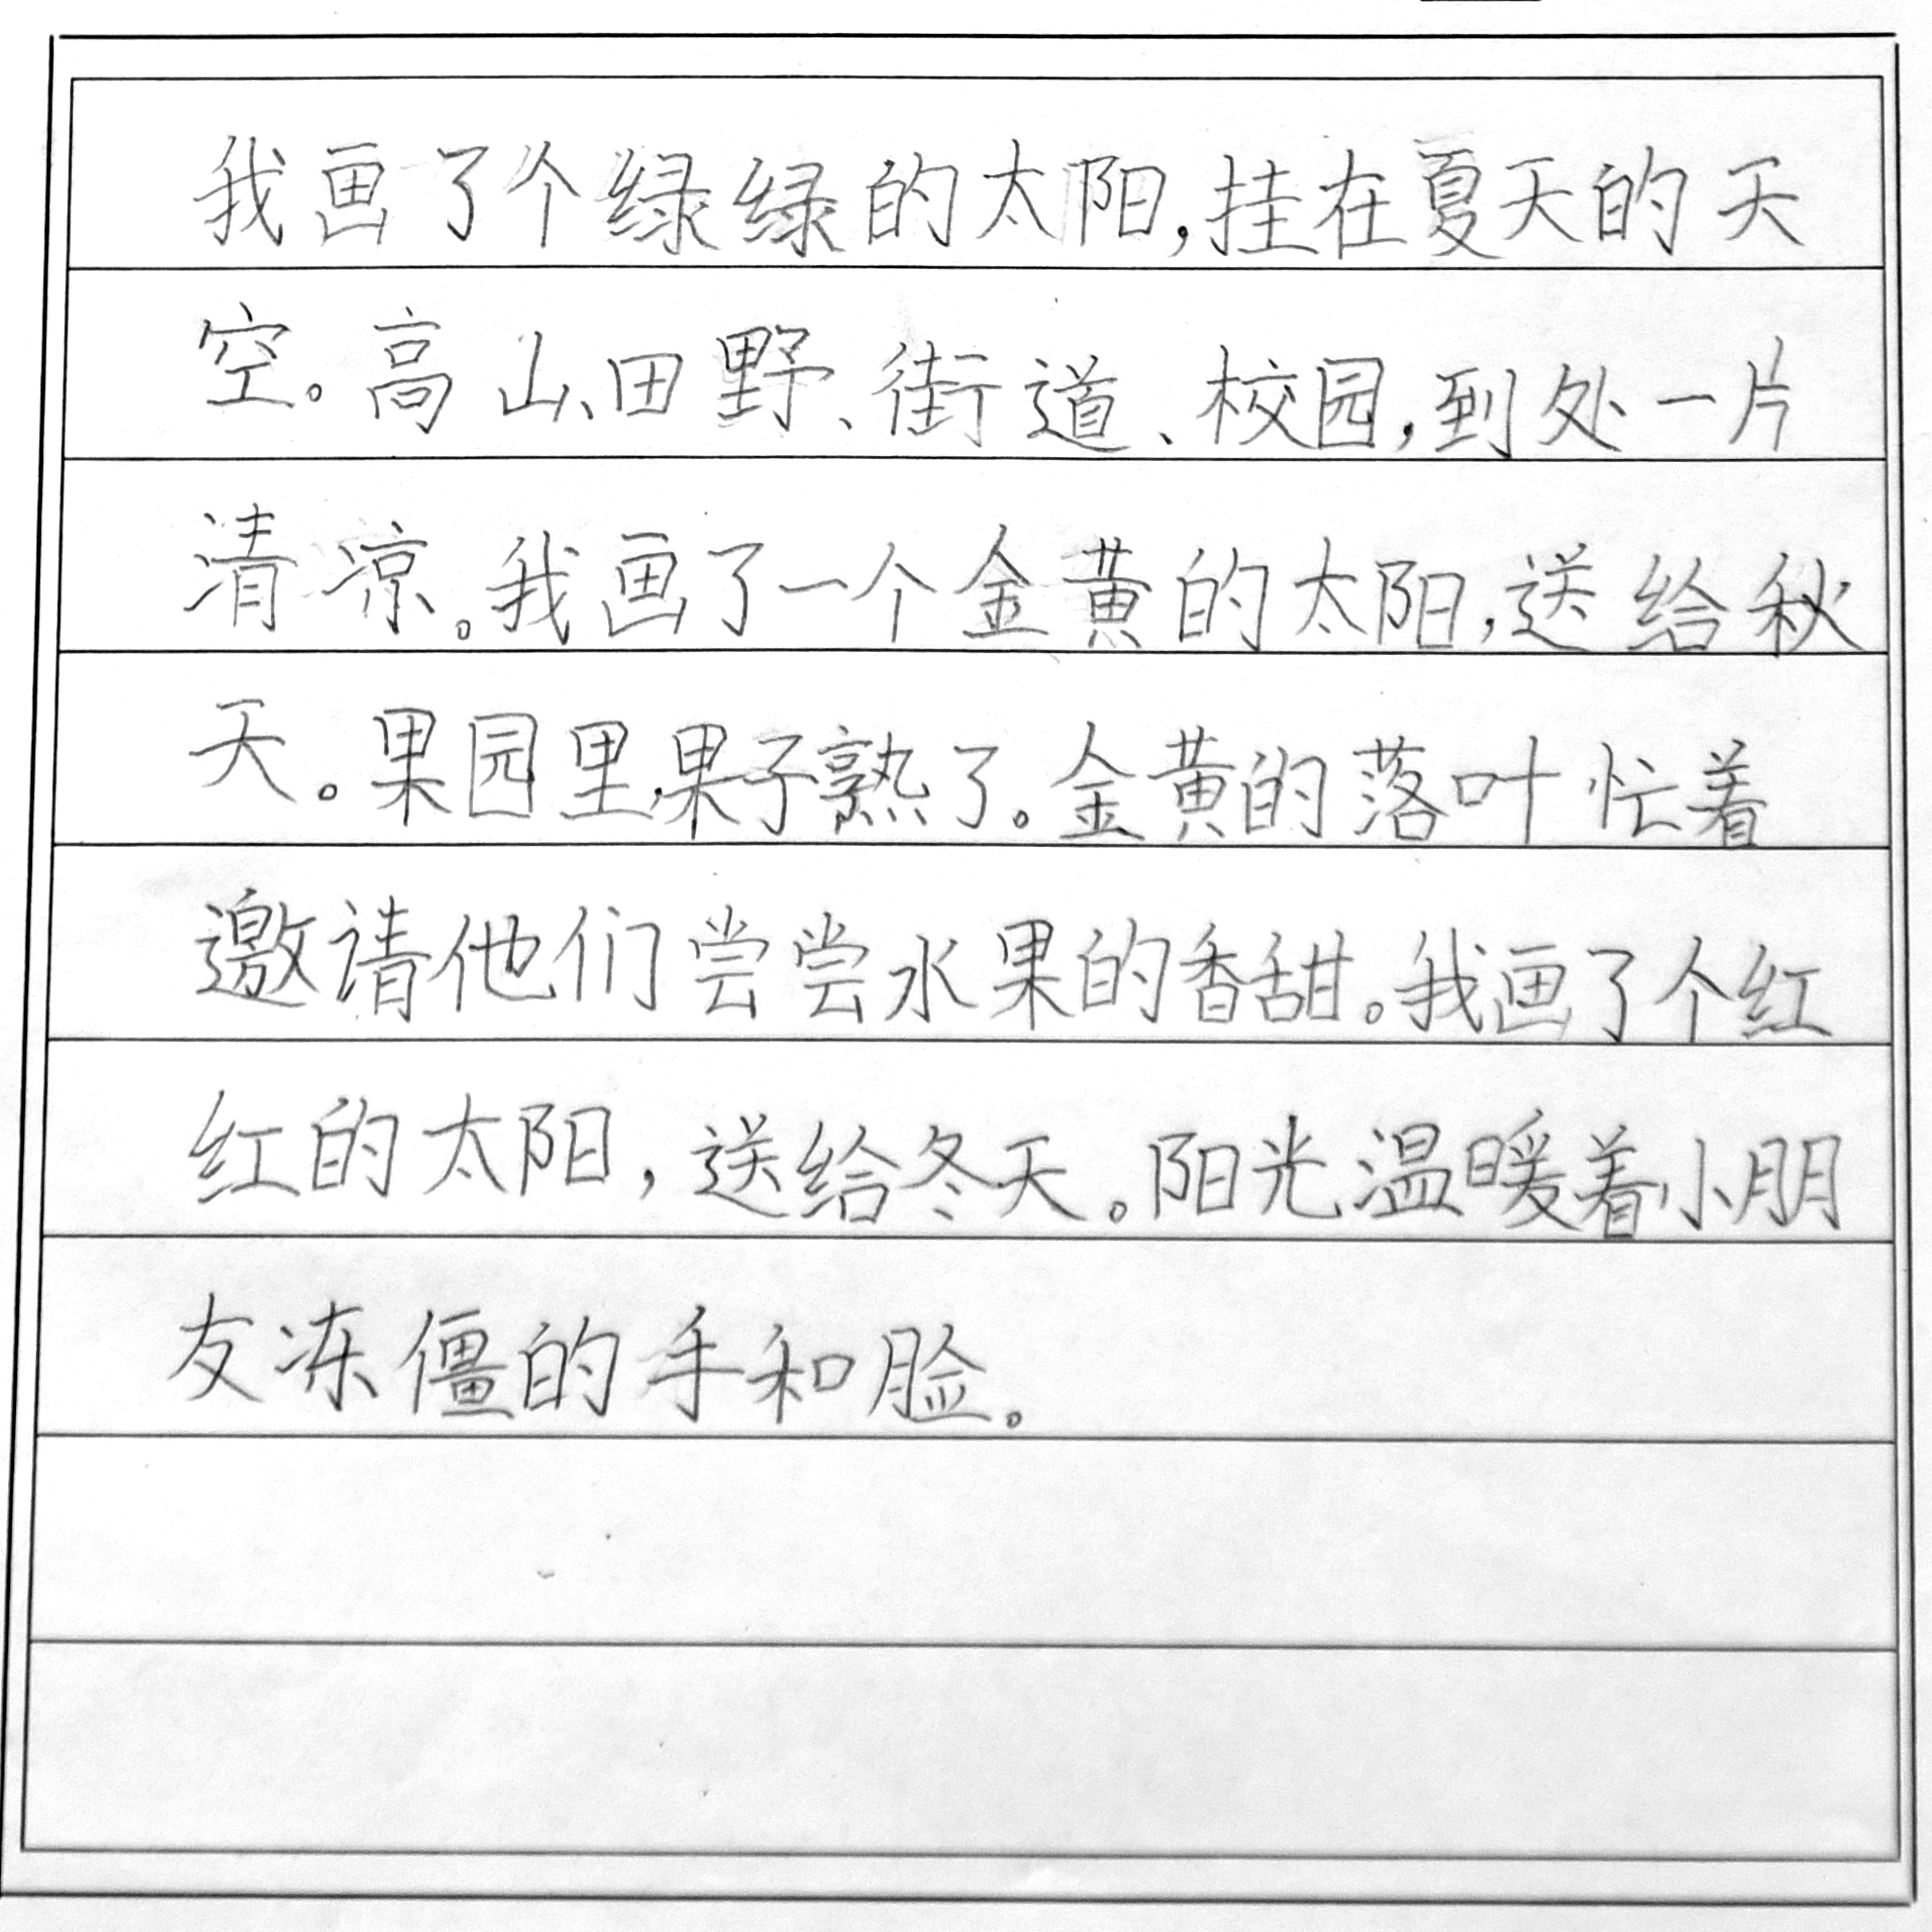 我画了个绿绿的太阳,挂在夏天的天
空。高山、田野、街道、校园,到处一片
清凉。我画了一个金黄的太阳,送给秋
天。果园里,果子熟了。金黄的落叶忙着
邀请他们尝尝水果的香甜。我画了个红
红的太阳,送给冬天。阳光温暖着小朋
友冻僵的手和脸。